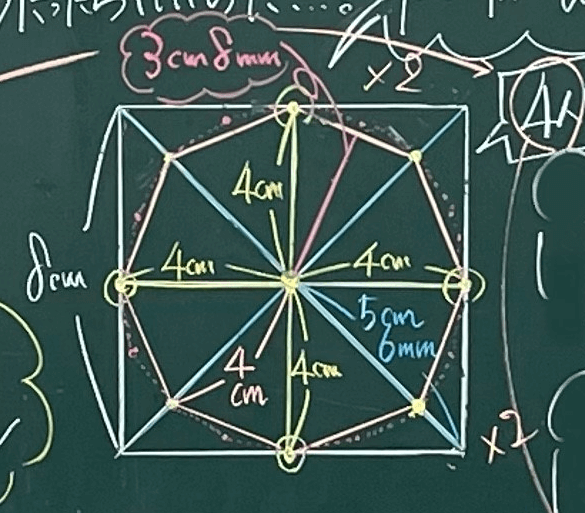 3cm8mm
×2
4cm
4cm
4cm
8cm
5cm
6mm
4
cm
4cm
×2